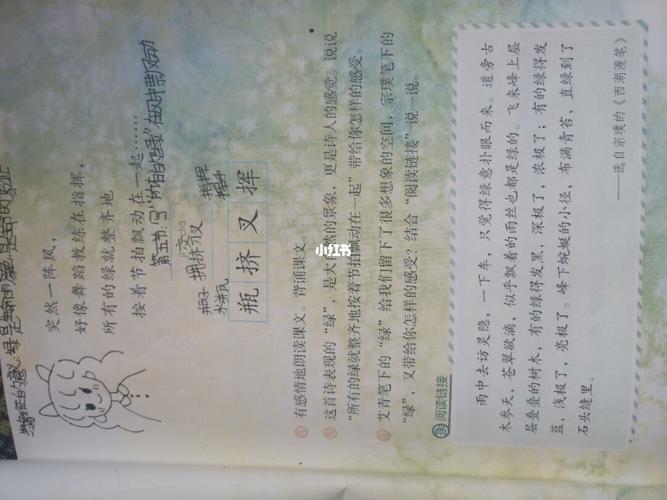 突然一阵风，
好像舞蹈教练在指挥，
所有的绿就整齐地
按着节拍飘动在一起……
瓶子
水瓶
拥挤
指挥
瓶 挤 叉 挥
小红书
有感情地朗读课文。背诵课文。
这首诗表现的“绿”，是大自然的景象，更是诗人的感觉。说说
“所有的绿就整齐地按着节拍飘动在一起”带给你怎样的感受。
艾青笔下的“绿”给我们留下了很多想象的空间，宗璞笔下的
“绿”，又带给你怎样的感受？结合“阅读链接”说一说。
阅读链接
雨中去访灵隐，一下车，只觉得绿意扑眼而来。道旁古
木参天，苍翠欲滴，似乎飘着的雨丝也都是绿的。飞来峰上层
层叠叠的树木，有的绿得发黑，深极了，浓极了；有的绿得发
蓝，浅极了，亮极了。峰下蜿蜒的小径，布满青苔，直绿到了
石头缝里。
——选自宗璞的《西湖漫笔》